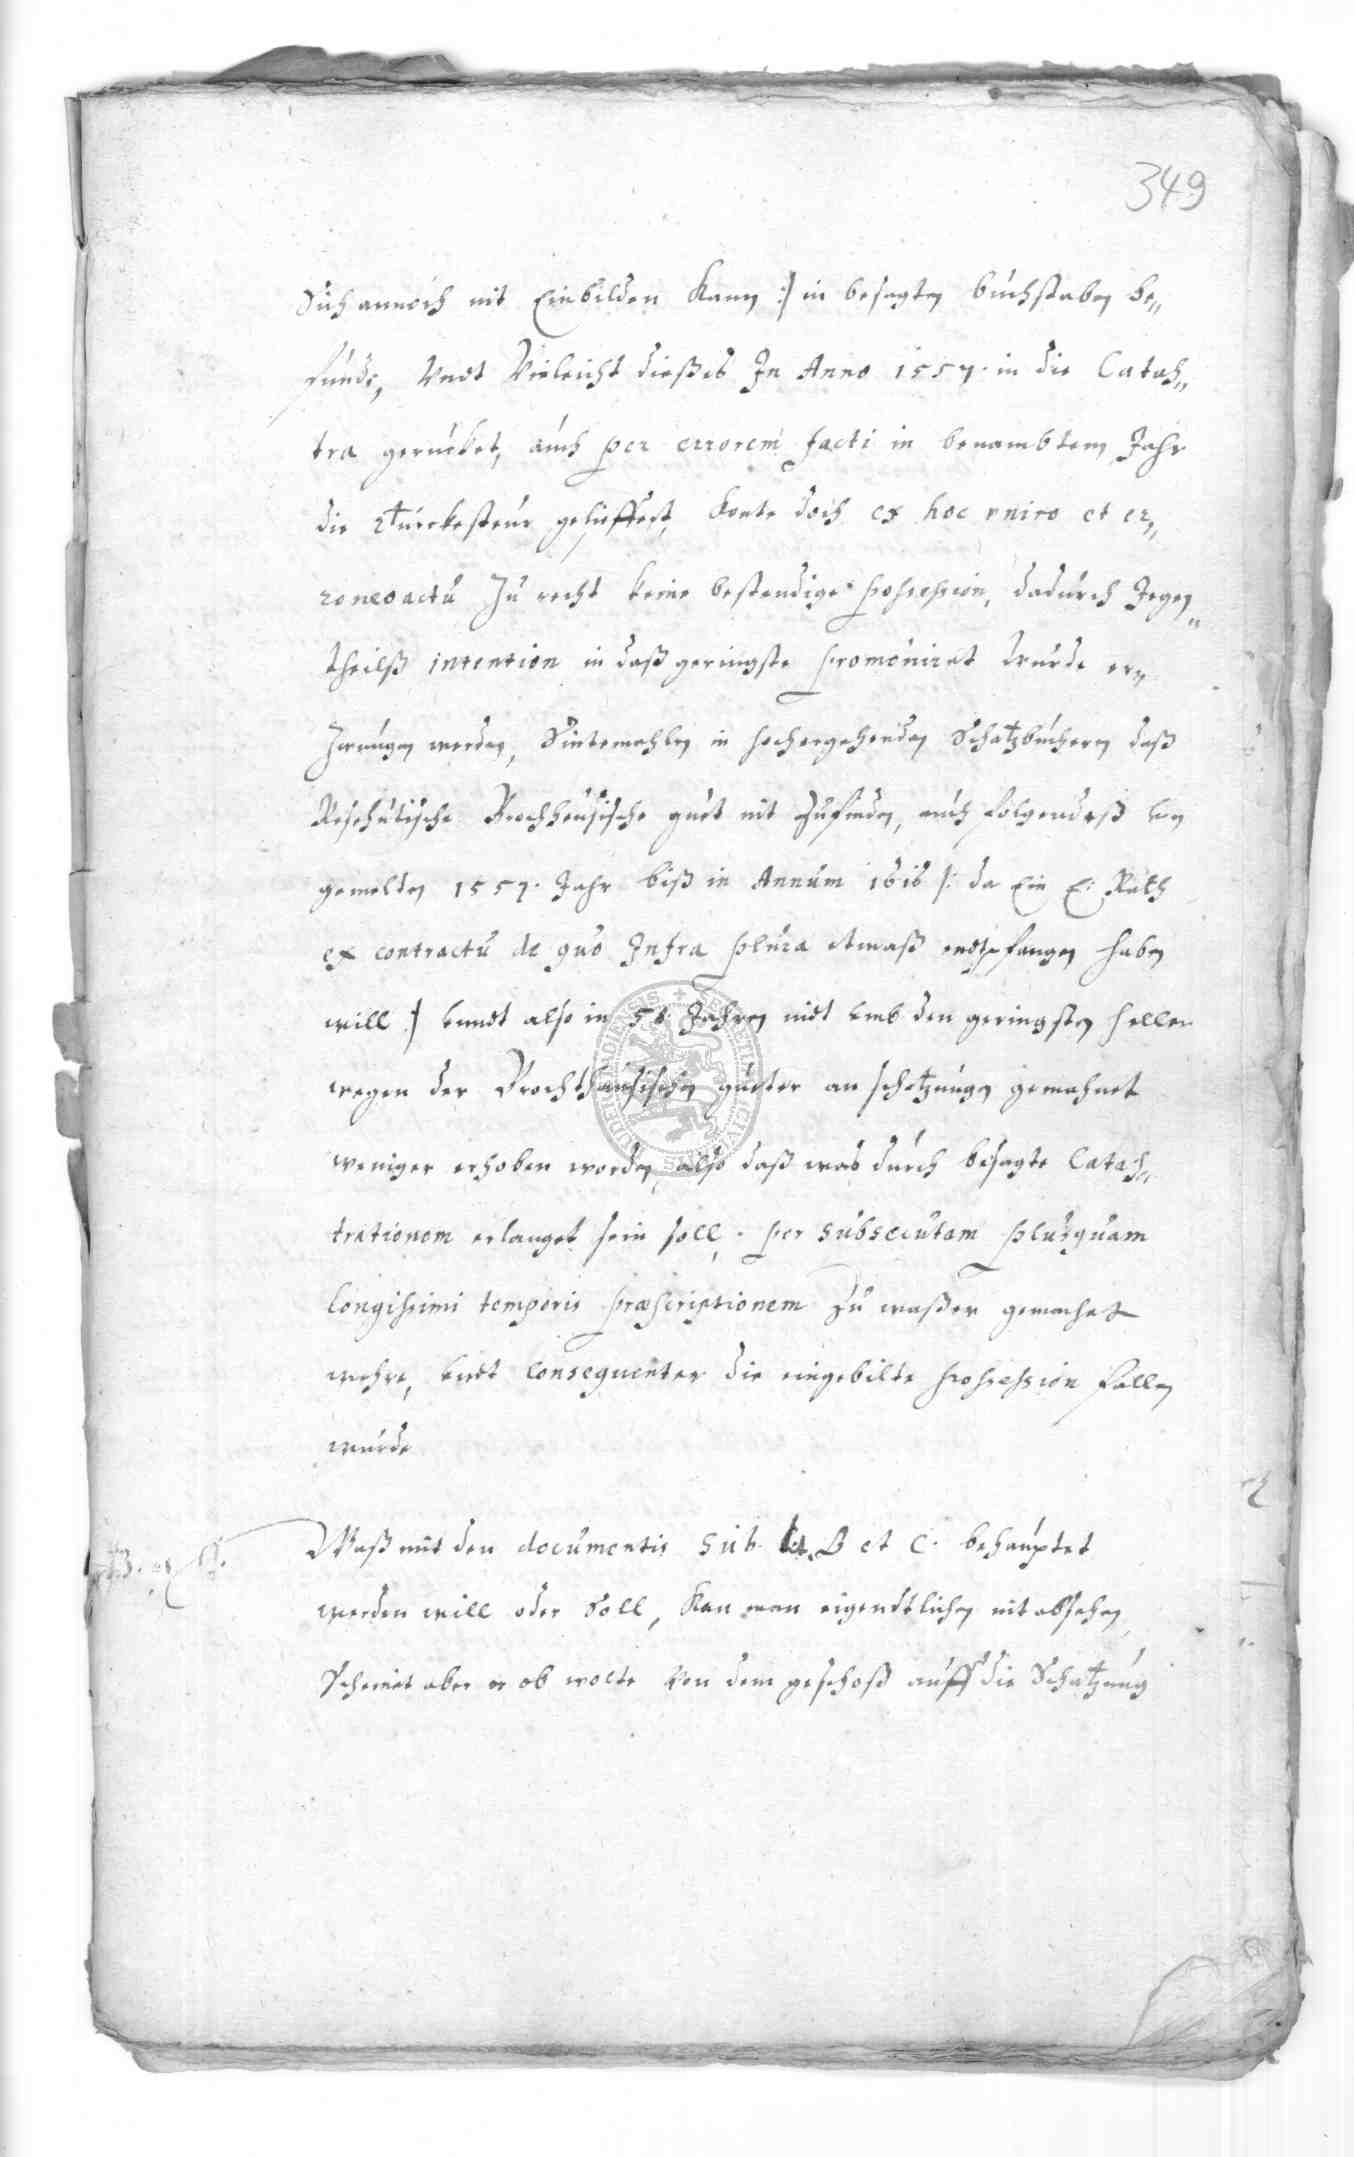 349
Sich annoch nit Einbilden kann :/ in besagten buchstaben be„
funde, Undt Vieleicht dießes In Anno 1557. in die Catas„
tra gerucket, auch per errorem facti in benambtem Jahr
die Türckesteur gelieffert, konte doch ex hoc vnico et er„
roneo actu Zu recht keine bestendige possession, dadurch Jegen„
theilß intention in daß geringste promoviret würde er„
zwungen werden, Sintemahlen in hochergehenden Schatzbüchern daß
guet nit Zufinden, auch folgendeß von
gemelten 1557. Jahr biß in Annum 1616 /: da Ein E: Rath
ex contractu de quo Infra plura etwaß endtpfangen haben
will :/ unndt also in 58 Jahren nidt umb den geringsten heller
wegen der Brochthausischen gueter an schatzungen gemahnet
weniger erhoben worden, also daß was durch besagte Catas„
trationem erlanget sein soll, per subsecutam plusquam
longissimi temporis præscriptionem Zu waßer gemachet
wehre, undt consequenter die eingebilte possession fallen
wurde
B. et C.
Waß mit den documentis sub lit. B et C. behauptet
werden will oder Soll, Kan man eigendtlichen nit absehen,
Scheinet aber er ob wolte Von dem geschoß auff die Schatzung